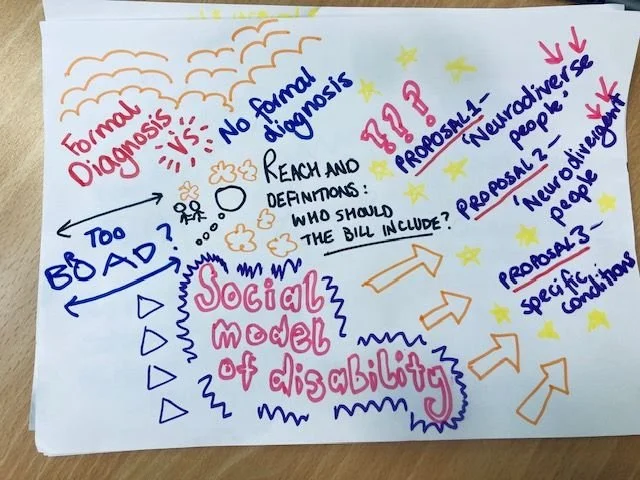 Formal
Diagnosis
VS
No formal
diagnosis
???
REACH AND
DEFINITIONS:
WHO SHOULD
THE BILL INCLUDE?
TOO
BROAD?
Social
model
of disability
PROPOSAL 1 -
'Neurodiverse
people'
PROPOSAL 2 -
'Neurodivergent
people
PROPOSAL 3 -
specific
conditions